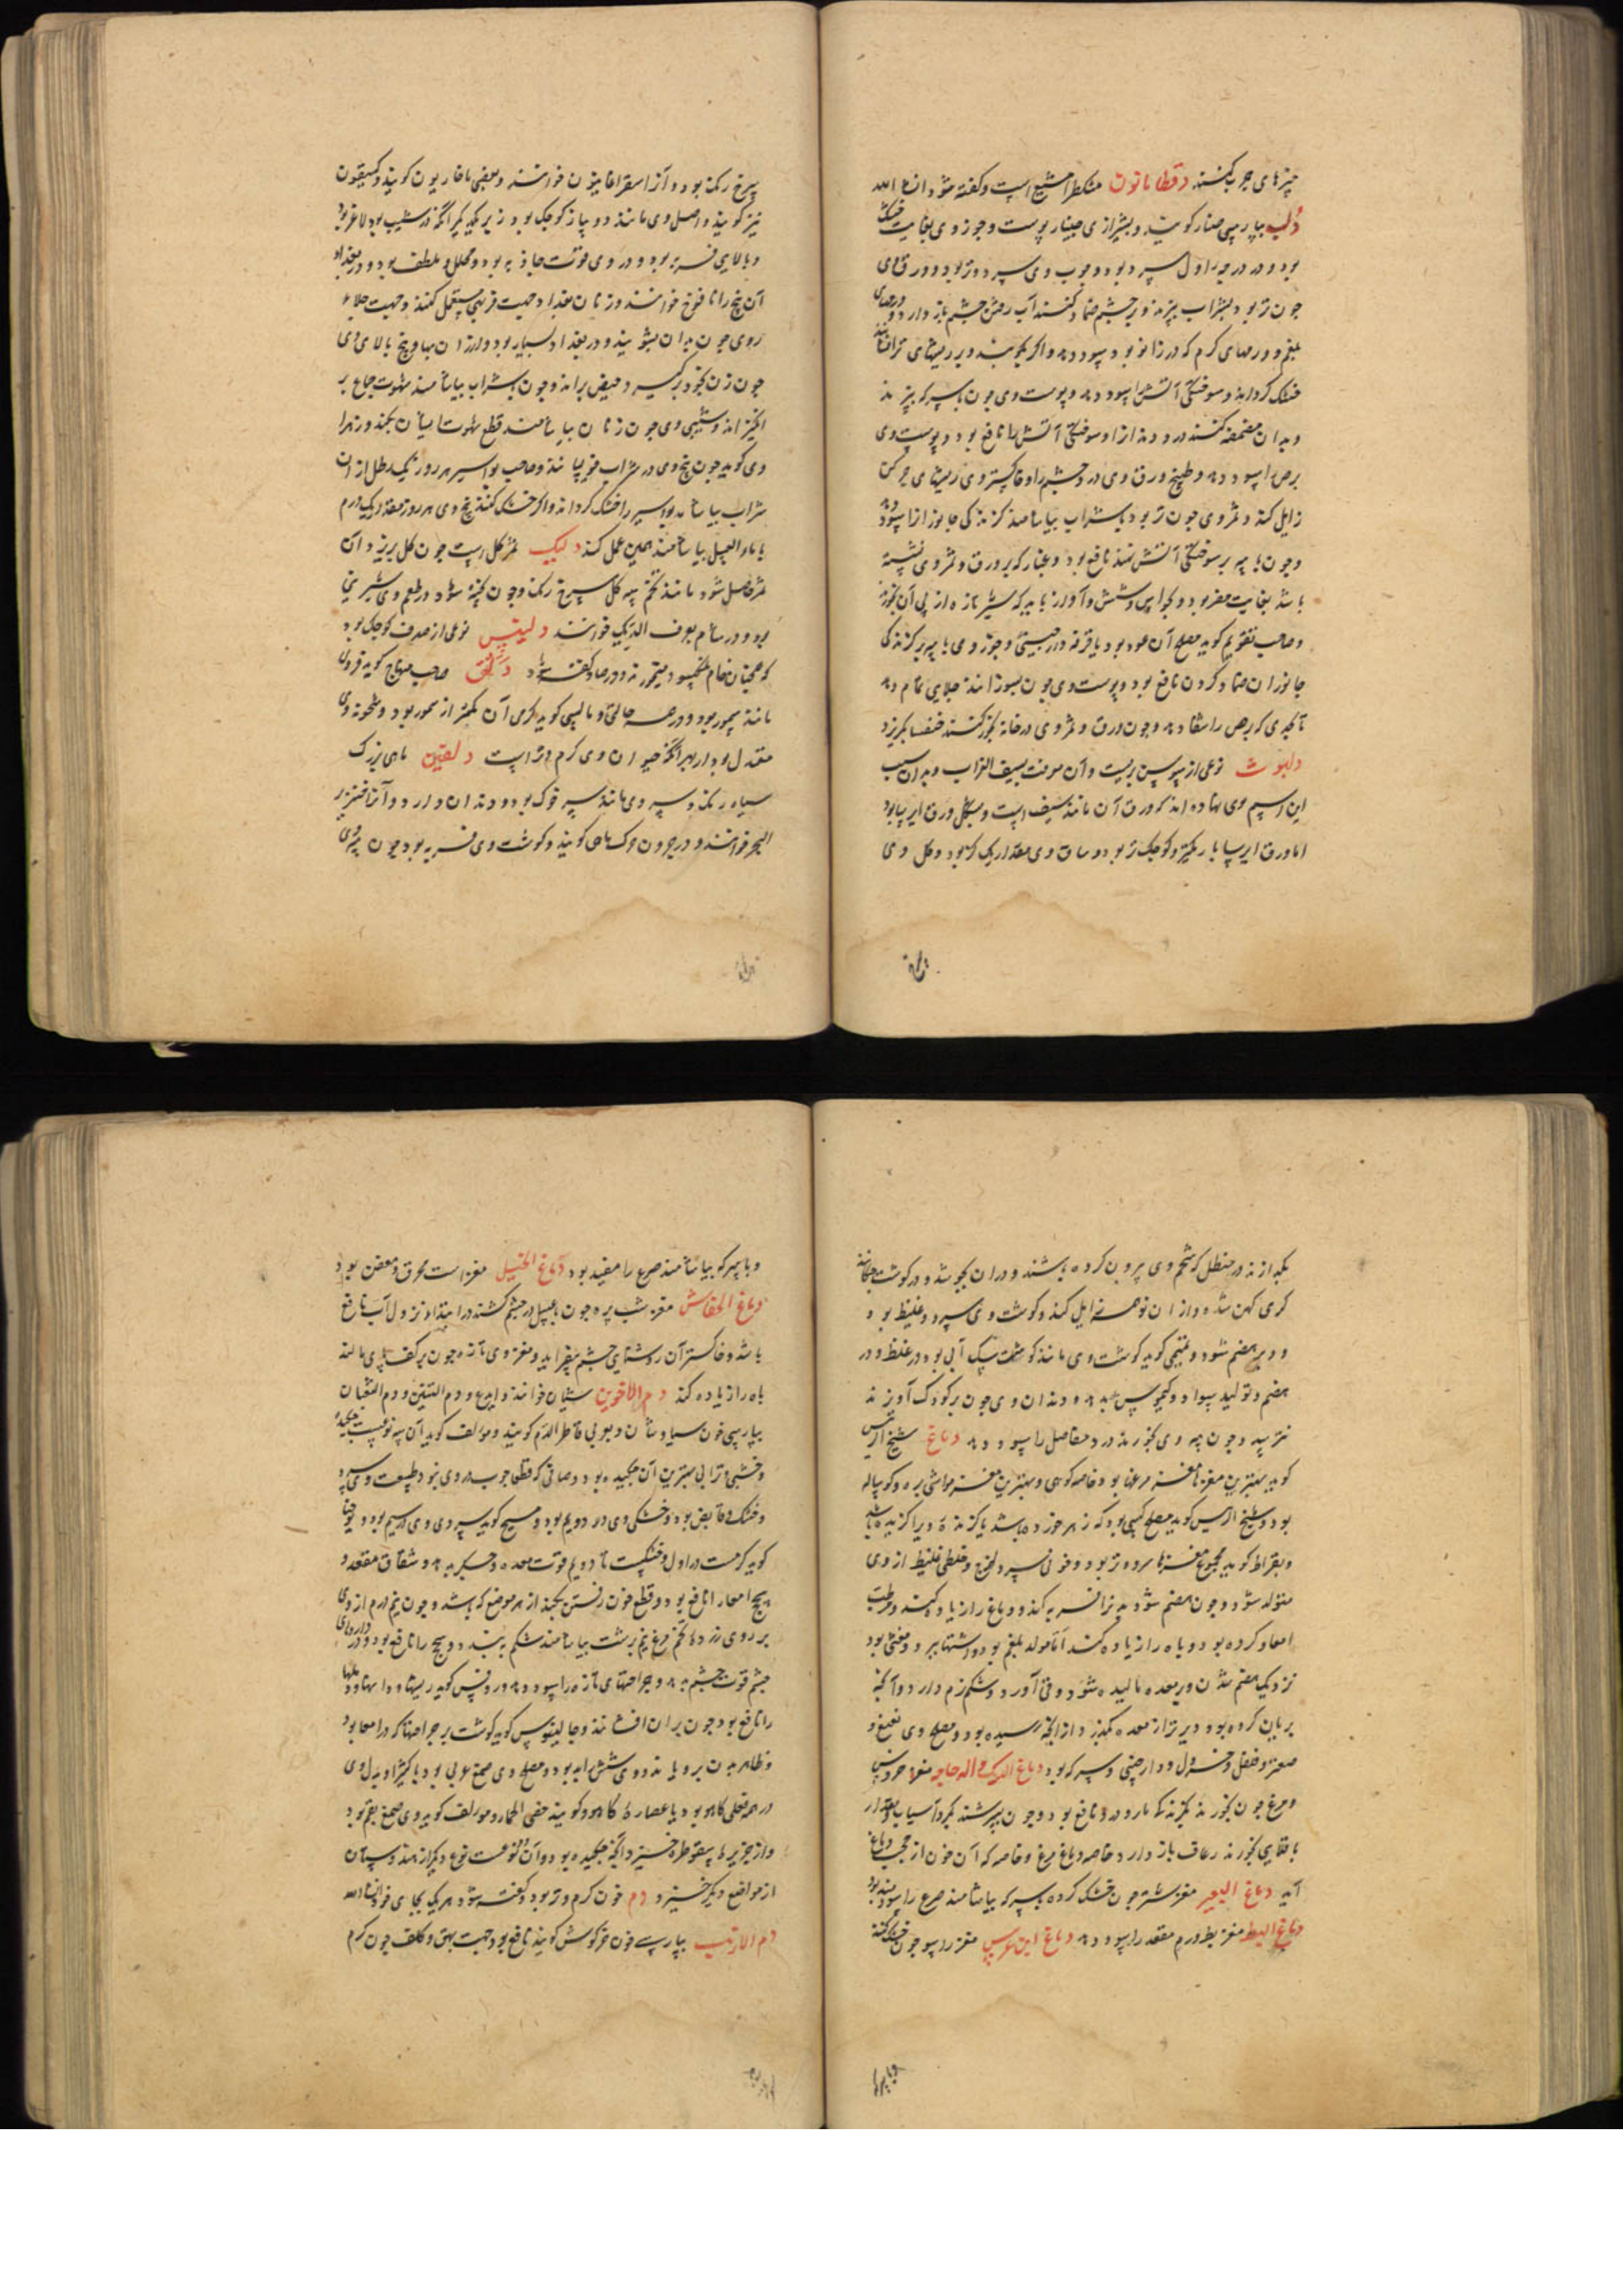 چیزهای چرب کنند دقطامانون مشکطرامشیع است و گفته شود ان شا الله
دلب بپارسی چنار گویند و بیشتر از وی چنار پوست و جوز وی بغایت خشک
بود و در درجه اول سرد بود و چوب وی سرد و تر بود و ورق وی
چون تر بود بشراب بپزند و بر چشم ضماد کنند آب رفتن چشم باز دارد و ورمهای
بلغم و ورمهای گرم که در زانو بود سود دهد و اگر بکوبند و بر ریشهای تر افشانند
خشک گرداند و سوختگی آتش را سود دهد و پوست وی چون با سرکه بپزند
و بدان مضمضه کنند درد دندان را و سوختگی آتش را نافع بود و پوست وی
برص را سود دهد و طبیخ ورق وی درد چشم را و خاکستر وی ریشهای چرکن
زایل کند و ثمر وی چون تر بود با شراب بیاشامند گزندگی جانوران را سود دهد
و چون با پیه بر سوختگی آتش نهند نافع بود و غبار که بر ورق و ثمر وی نشسته
باشد بغایت مضر بود و حواس و شش و آواز باید که شیر تازه از پی آن بخورند
و صاحب تقویم گوید مصلح آن عود بود با قرفه و دارچینی و جوز وی با پیه بر گزندگی
جانوران ضماد کردن نافع بود و پوست وی چون بسوزانند جلایی تمام دهد
تا بحدی که برص را شفا دهد و چون ورق و ثمر وی در خانه بخور کنند خنفسا بگریزد
دلبوث نوعی از سوسن بریست و آن معروفست بسیف الغراب و بدان سبب
این اسم بوی نهاده اند که ورق آن مانند سیف است و بشکل ورق ایرسا بود
اما ورق ایرسا باریکتر و کوچک تر بود و ساق وی مقدار یک گز بود و گل وی
سرخ رنگ بود و آن را سقرافایون خوانند و بعضی ماخاریون گویند و کسیفون
نیز گویند و اصل وی مانند دو پیاز کوچک بود زیر یکدیگر آنکه در شیب بود لاغر بود
و بالایی فربه بود و در وی قوت جاذبه بود و محلل و ملطف بود و در بغداد
آن بیخ را نافوخ خوانند و زنان بغداد جهت فربهی مستعمل کنند و جهت جلاء
روی چون بدان بشویند و در بغداد بسیار بود و ارزان بها و بیخ بالای وی
چون زن بخود برگیرد حیض براند و چون با شراب بیاشامند شهوت جماع بر
انگیزاند و شیبی وی چون زنان بیاشامند قطع شهوت ایشان بکند و زهرا
وی گوید چون بیخ وی در شراب خیسانند و صاحب بواسیر هر روز یک رطل از ان
شراب بیاشامد بواسیر را خشک گرداند و اگر خشک کنند بیخ وی هر روز مقدار یک درم
با ماء العسل بیاشامند همین عمل کند دلیک ثمر گل است چون گل بریزد آن
ثمر حاصل شود مانند تخم پیه گل سرخ رنگ و چون پخته شود در طعم وی شیرینی
بود و در شام بصرف الدیک خوانند دلینس نوعی از صدف کوچک بود
که همچنان خام نمکسود میخورند و در صاد گفته شود دلق صاحب منهاج گوید فروی
مانند سمور بود و در همه حالتی و مالسی گوید گرمی آن کمتر از سمور بود و سخونة وی
معتدل بود از بهر آنکه حیوان وی گرم و تر است دلفین ماهی بزرگ
سیاه رنگ و سر وی مانند سر خوک بود و دندان دارد و آن را خنزیر
البحر خوانند و در جرون خوک ماهی گویند و گوشت وی فربه بود چون پیه وی
بگدازند در حنظل که شحم وی بیرون کرده باشند و در ان بجوشد و در گوش چکانند
کری کهن شده و از ان نو همه زایل کند و گوشت وی سرد و غلیظ بود
و دیر هضم شود و تمیمی گوید گوشت وی مانند گوشت سگ آبی بود در غلظ و در
هضم و تولید سودا و کیموس بد دهد و دندان وی چون بر کودک آویزند
نترسد و چون پیه وی بخورند درد مفاصل را سود دهد دماغ شیخ الرئیس
گوید بهترین مغزها مغز مرغان بود خاصه کوهی و بهترین مغز مواشی بره و گوساله
بود و شیخ الرئیس گوید مصلح کسی بود که زهر خورده باشد یا گزنده ویرا گزیده باشد
و بقراط گوید مجموع مغزها سرد و تر بود و خونی سرد و لزج و خلطی غلیظ از وی
متولد شود و چون هضم شود بدن را فربه کند و دماغ را زیاده کند و رطب
امعاء کرده بود و باه را زیاده کند اما مولد بلغم بود و اشتها ببرد و مغثی بود
نزدیک هضم شدن و بر معده مالیده شود و قی آورد و شکم نرم دارد و آنکه
بریان کرده بود دیرتر از معده بگذرد از آنکه رسیده بود و مصلح وی نعنع و
صعتر و فلفل و خردل و دارچینی و سرکه بود دماغ الدیک و الدجاجه مغز خروس
و مرغ چون بخورند گزندگی مار و درد نافع بود و چون بپرستند بگرد آسیاب و مقدار
باقلایی بخورند رعاف باز دارد خاصه دماغ مرغ و خاصه که آن خون از حجب دماغ
آید دماغ البعیر مغز شتر چون خشک کرده با سرکه بیاشامند صرع را سودمند بود
دماغ البط مغز بط ورم مقعد را سود دهد دماغ ابن عرس مغز راسو چون خشک کنند
و با سرکه بیاشامند صرع را مفید بود دماغ الخیل مغز است محرق و معفن بود
دماغ الخفاش مغز شب پره چون با عسل در چشم کشند در ابتداء نزول آب نافع
باشد و خاکستر آن روشنایی چشم بیفزاید و مغز وی تازه چون بر کف پای مالند
باه را زیاده کند دم الاخوین شیان خوانند و ایدع و دم التنین و دم الثعبان
بپارسی خون سیاوشان و بعربی قاطر الدم گویند و مؤلف گوید آن سه نوعیست چکیده
و خشبی و ترابی بهترین آن چکیده بود و صافی که قطعا چوب در وی نبود طبیعت وی سرد
و خشک و قابض بود و خشکی وی در دویم بود و مسیح گوید سردی وی در سیم بود و یوحنا
گوید گرمست در اول و خشکست تا دویم قوت معده و جگر بدهد و شقاق مقعد و
سحج امعا را نافع بود و قطع خون رفتن بکند از هر موضع که باشد و چون نیم درم از وی
بر روی زرده تخم مرغ نیم برشت بیاشامند شکم ببندد و سحج را نافع بود و در داروهای
چشم قوت چشم بدهد و جراحتهای تازه را سود دهد و رومس گوید ریشها و دانها و دملها
را نافع بود چون بر ان افشانند و جالینوس گوید گوشت بر جراحتها که در امعا بود
و ظاهر بدن برویاند و وی شش را بد بود و مصلح وی صمغ عربی بود یا کثیرا و بدل وی
در همه فعلی کاهو بود یا عصاره کاهو و گویند خصی الحمار و مؤلف گوید وی صمغ بقم بود
و از جزیره سقوطره خیزد آنکه چکیده بود و آن نوعست نوع دیگر از هند و سیتان
از مواضع دیگر خیزد دم خون گرم و تر بود و گفته شود هر یک بجای خود انشا الله
دم الارنب بپارسی خون خرگوش گویند نافع بود جهت بهق و کلف چون گرم